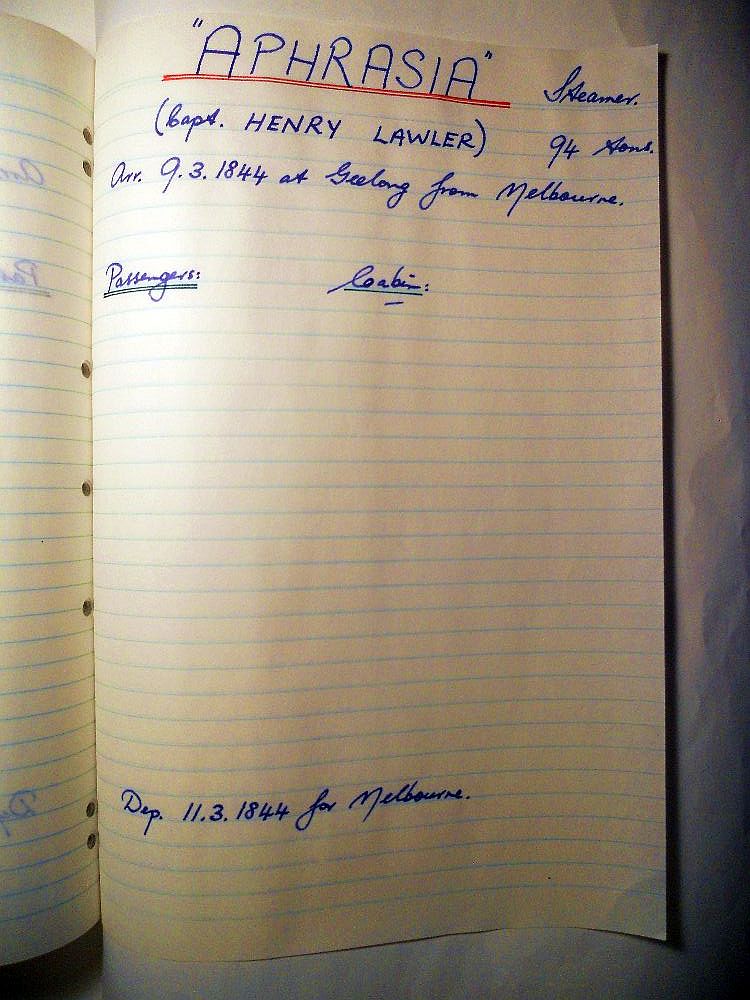 "APHRASIA" Steamer.
(Capt. HENRY LAWLER) 94 tons.
Arr. 9.3.1844 at Geelong from Melbourne.
Passengers: Cabin:
Dep. 11.3.1844 for Melbourne.